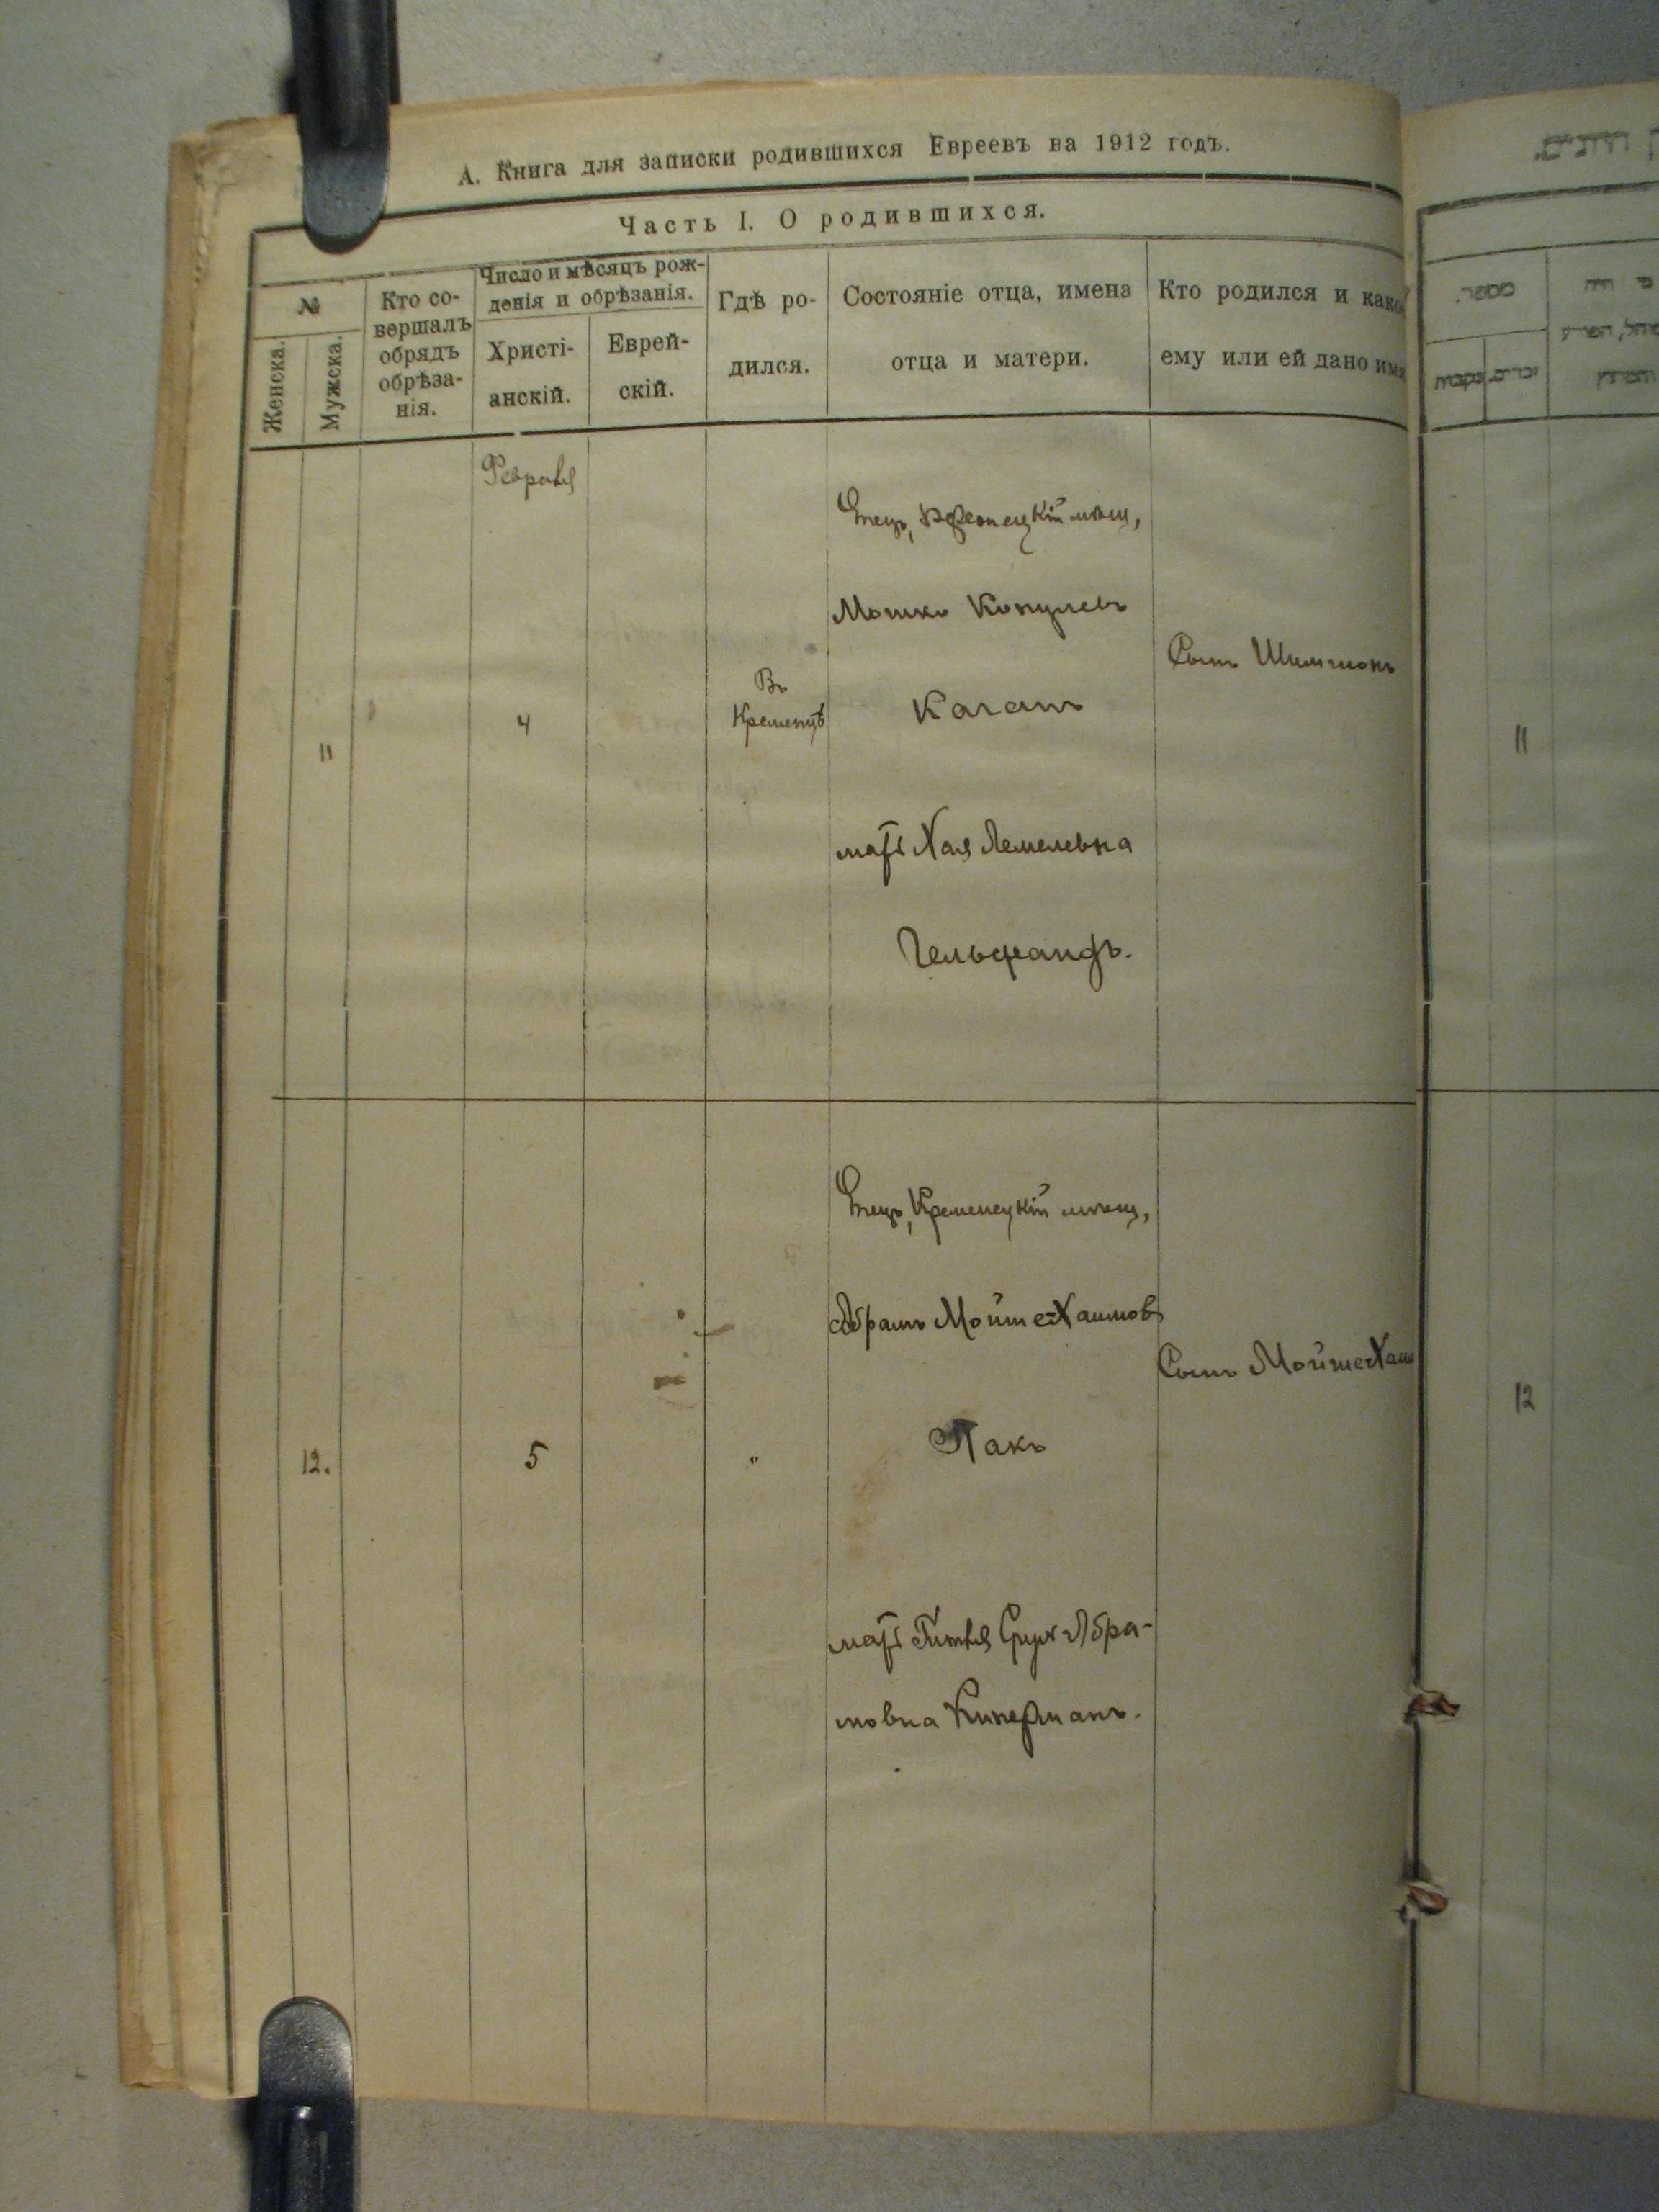 А. Книга для записки родившихся Евреевъ на 1912 годъ.
Часть I. О родившихся.
№
Женска.
Мужска.
Кто со-
вершалъ
обрядъ
обрѣза-
нія.
Число и мѣсяцъ рож-
денія и обрѣзанія.
Христі-
анскій.
Еврей-
скій.
Гдѣ ро-
дился.
Состояніе отца, имена
отца и матери.
Кто родился и какое
ему или ей дано имя
Февраля
11
4
Въ
Кременцѣ
Отецъ, мѣщ,
Мошко
Каганъ
мать Хая Лемелевна
Гельфандъ.
Сынъ Шимшонъ
11
12.
5
"
Отецъ, Кременецкій мѣщ,
Абрамъ Мойше=Хаимовъ
Пакъ
мать Гитля Сруль-Абра-
мовна Киперманъ.
Сынъ Мойше=Хаим
12